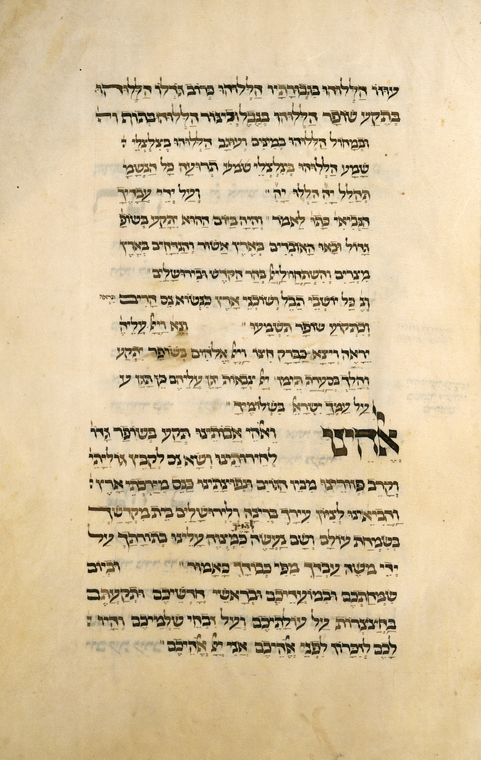 עוזו הללוהו בגבורתיו הללוהו כרוב גדלו הללוהו
בתקע שופר הללוהו בנבל וכינור הללוהו בתוף
ומחול הללוהו במינים ועוגב הללוהו בצלצלי
שמע הללוהו בצלצלי תרועה כל הנשמה
תהלל יה הללויה ועל ידי עבדיך
הנביאי כתו לאמר והיה ביום ההוא יתקע בשופ
גדול ובאו האובדים בארץ אשור והנדחים בארץ
מצרים והשתחוו ליי בהר הקדש ובירושלים
ונ כל יושבי תבל ושוכני ארץ כנשוא נס הרים תראו
וכתקוע שופר תשמעו ונא ויי עליה
יראה ויצא כברק חצו ויי אלהים בשופר יתקע
והלך בסערת תימן יי צבאות יגן עליהם כן תגן ע
על עמך ישראל בשלומיך
אלהינו ואלהי אבותינו תקע בשופר גדו
לחירותינו ושא נס לקבץ גליותי
וקרב פזורינו מבין הגוים ונפוצותינו כנס מירכתי ארץ
והביאנו לציון עירך ברינה ולירושלים בית מקדשך
בשמחת עולם ושם נעשה כמצוה עלינו בתורתך על
ידי משה עבדך מפי כבודך כאמור וביום
שמחתכם ובמועדיכם ובראשי חדשיכם ותקעתם
בחצוצרות על עולתיכם ועל זבחי שלמיכם והיו
לכם לזכרון לפני אלהיכם אני יי אלהיכם